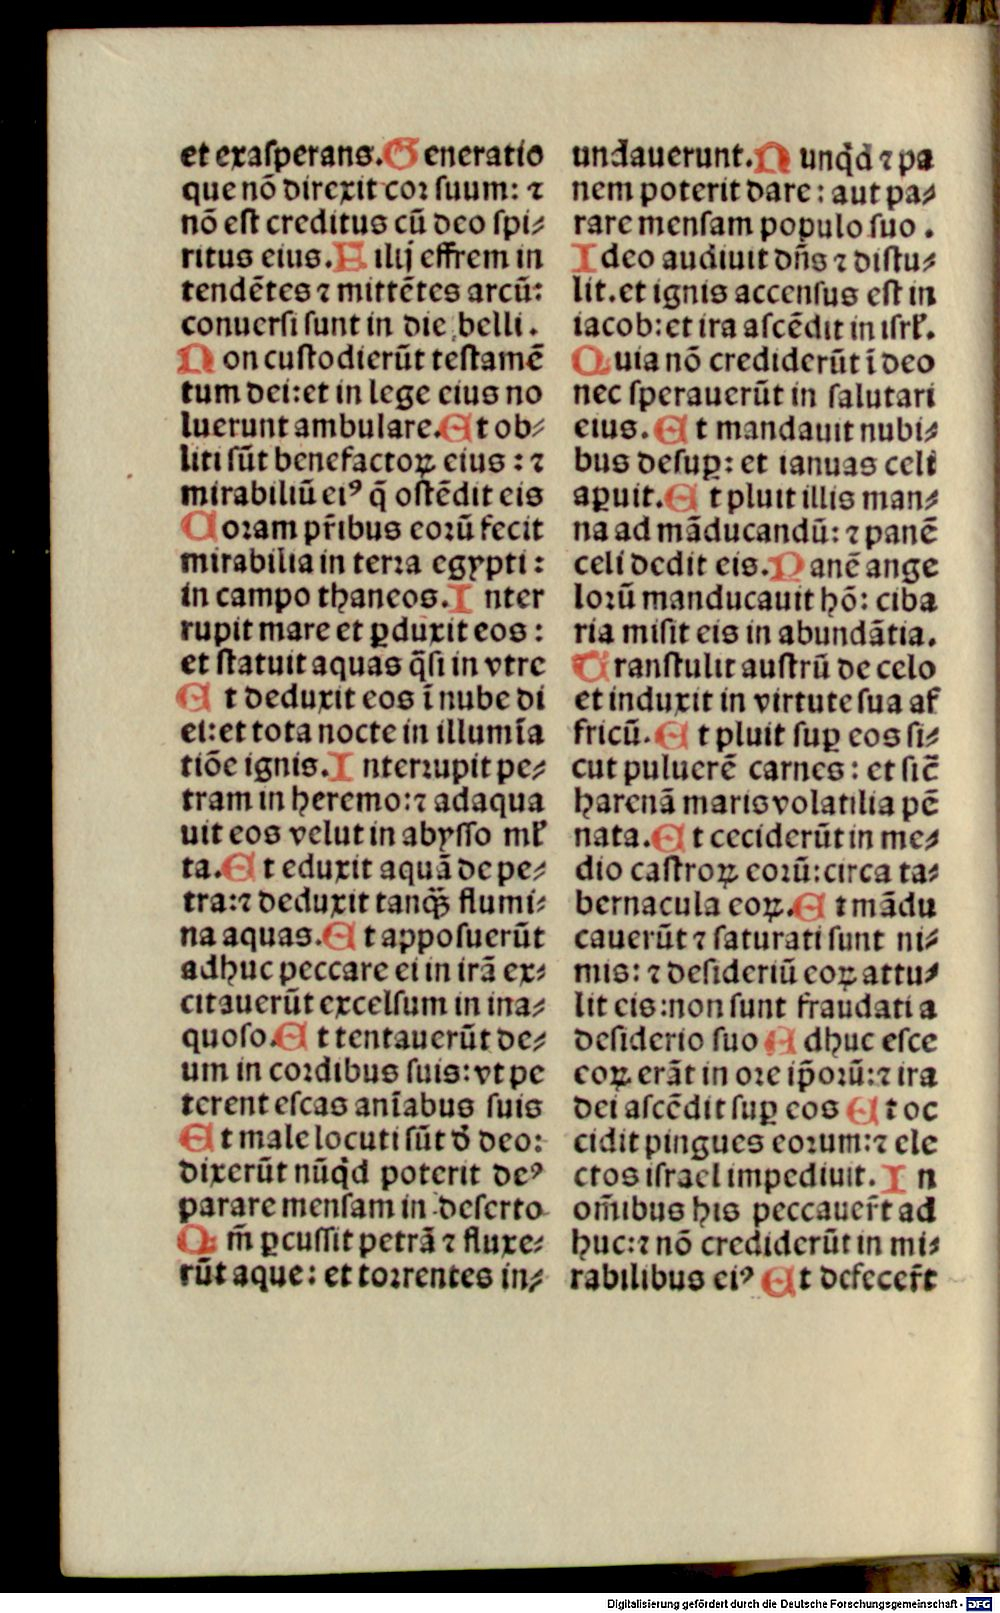 et exaſperans. Generatio
que nō direxit coꝛ ſuum: ⁊
nō eſt creditus cū deo ſpi⸗
ritus eius. Filij effrem in
tendētes ⁊ mittētes arcū:
conuerſi ſunt in die belli.
Non cuſtodierūt teſtamē
tum dei: et in lege eius no
luerunt ambulare. Et ob⸗
liti ſūt benefactoꝝ eius: ⁊
mirabiliū eiꝰ q̄ oſtēdit eis
Coꝛam pr̄ibus eoꝛū fecit
mirabilia in terꝛa egypti:
in campo thaneos. Inter
rupit mare et ꝑduxit eos:
et ſtatuit aquas q̄ſi in vtre
Et deduxit eos ī nube di
ei: et tota nocte in illumīa
tiōe ignis. Interꝛupit pe⸗
tram in heremo: ⁊ adaqua
uit eos velut in abyſſo ml̄
ta. Et eduxit aquā de pe⸗
tra: ⁊ deduxit tanqꝫ̄ flumi⸗
na aquas. Et appoſuerūt
adhuc peccare ei in irā ex⸗
citauerūt excelſum in ina⸗
quoſo. Et tentauerūt de⸗
um in coꝛdibus ſuis: vt pe
terent eſcas anīabus ſuis
Et male locuti ſūt d̄ deo:
dixerūt nūq̄d poterit deꝰ
parare menſam in deſerto
Qm̄ ꝑcuſſit petrā ⁊ fluxe⸗
rūt aque: et toꝛrentes in⸗
undauerunt. Nunq̄d ⁊ pa
nem poterit dare: aut pa⸗
rare menſam populo ſuo.
Ideo audiuit dn̄s ⁊ diſtu⸗
lit. et ignis accenſus eſt in
iacob: et ira aſcēdit in iſrl̄.
Quia nō crediderūt ī deo
nec ſperauerūt in ſalutari
eius. Et mandauit nubi⸗
bus deſuꝑ: et ianuas celi
aꝑuit. Et pluit illis man⸗
na ad māducandū: ⁊ panē
celi dedit eis. Panē ange
loꝛū manducauit hō: ciba
ria miſit eis in abundātia.
Tranſtulit auſtrū de celo
et induxit in virtute ſua af
fricū. Et pluit ſuꝑ eos ſi⸗
cut puluerē carnes: et ſic̄
harenā maris volatilia pē
nata. Et ceciderūt in me⸗
dio caſtroꝝ eoꝛū: circa ta⸗
bernacula eoꝝ. Et mādu
cauerūt ⁊ ſaturati ſunt ni⸗
mis: ⁊ deſideriū eoꝝ attu⸗
lit eis: non ſunt fraudati a
deſiderio ſuo Adhuc eſce
eoꝝ erāt in oꝛe ip̄oꝛū: ⁊ ira
dei aſcēdit ſuꝑ eos Et oc
cidit pingues eoꝛum: ⁊ ele
ctos iſrael impediuit. In
om̄ibus his peccauer̄t ad
huc: ⁊ nō crediderūt in mi⸗
rabilibus eiꝰ Et defecer̄t
Digitalisierung gefördert durch die Deutsche Forschungsgemeinschaft - DFG